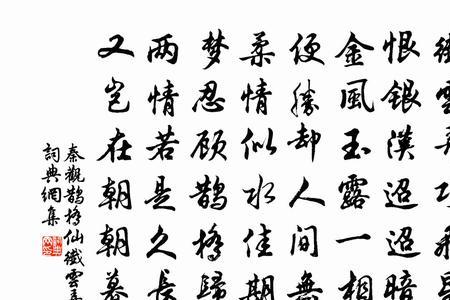 恨銀漢迢迢暗
金風玉露一相
便勝却人間無
柔情似水佳期
梦忍顾鵲橋歸
两情若是久長
又岂在朝朝暮
秦觀鵲橋仙纖雲
詞典網集